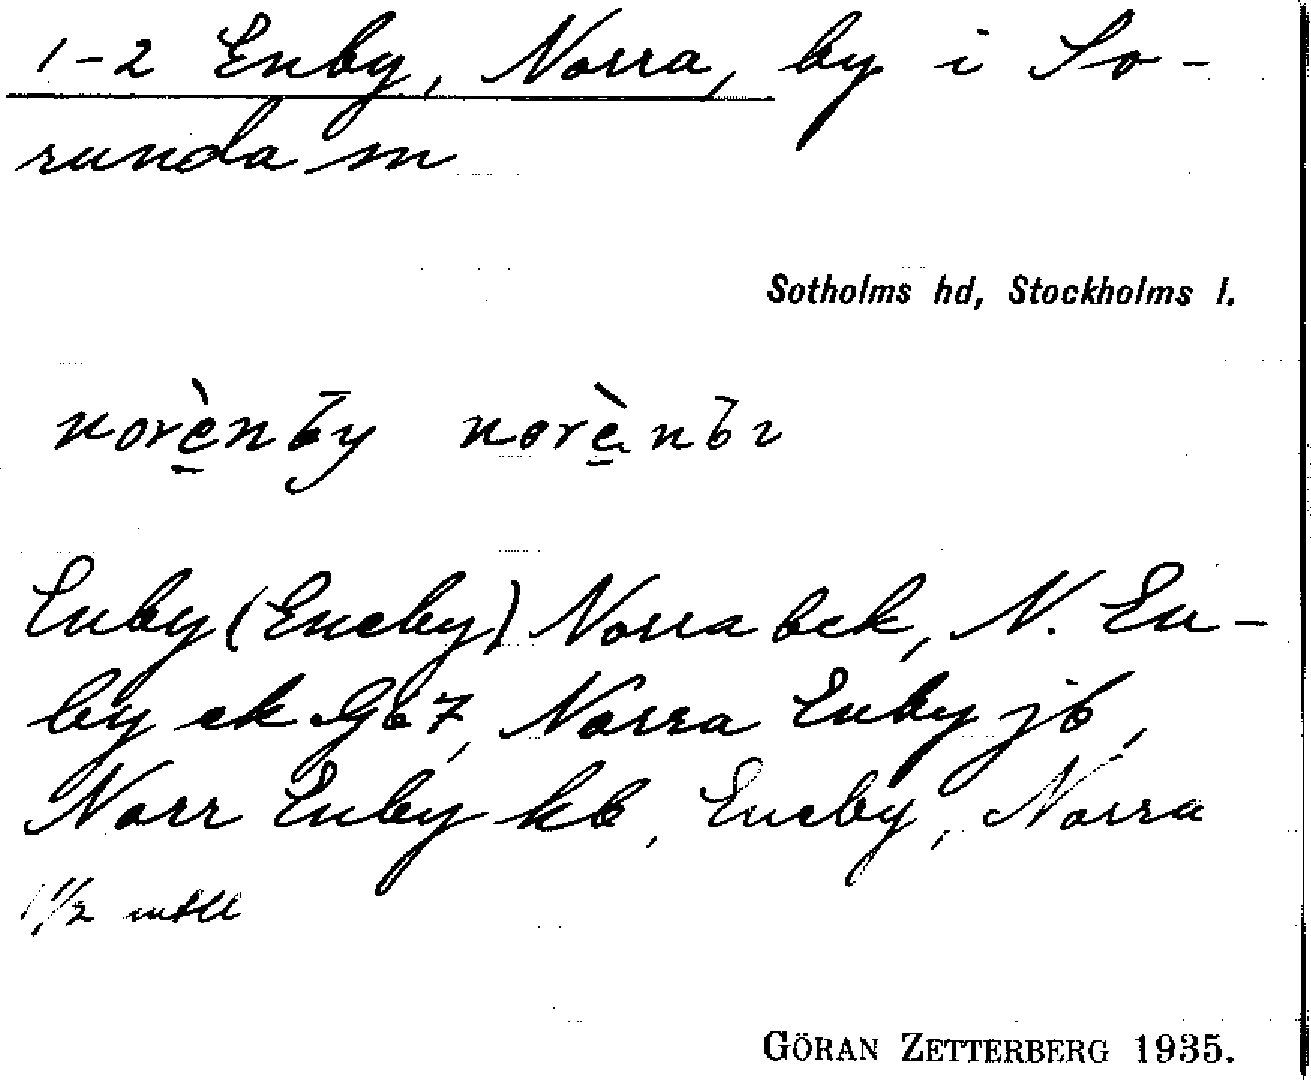 1-2 Enby, Norra, by i So-
runda sn
Sotholms hd, Stockholms l.
norènby norènbı
Enby (Eneby) Norra bck, N. En-
by ek Gb 7, Norra Enby jb,
Norr Enby kb, Eneby, Norra
1 1/2 mtll
GÖRAN ZETTERBERG 1935.